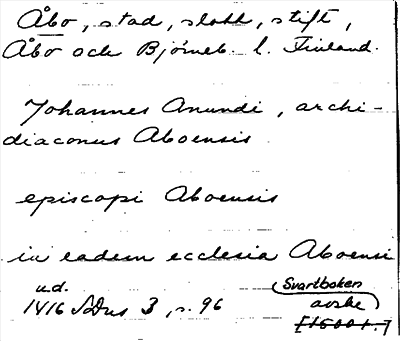 Åbo, stad, slott, stift,
Åbo och Björneb. l. Finland.
Johannes Anundi, archi-
diaconus Aboensis
episcopi Aboensis
in eadem ecclesia Aboensi
u.d. Svartboken
1416 SDns 3, s. 96 avskr
[1500 t.]